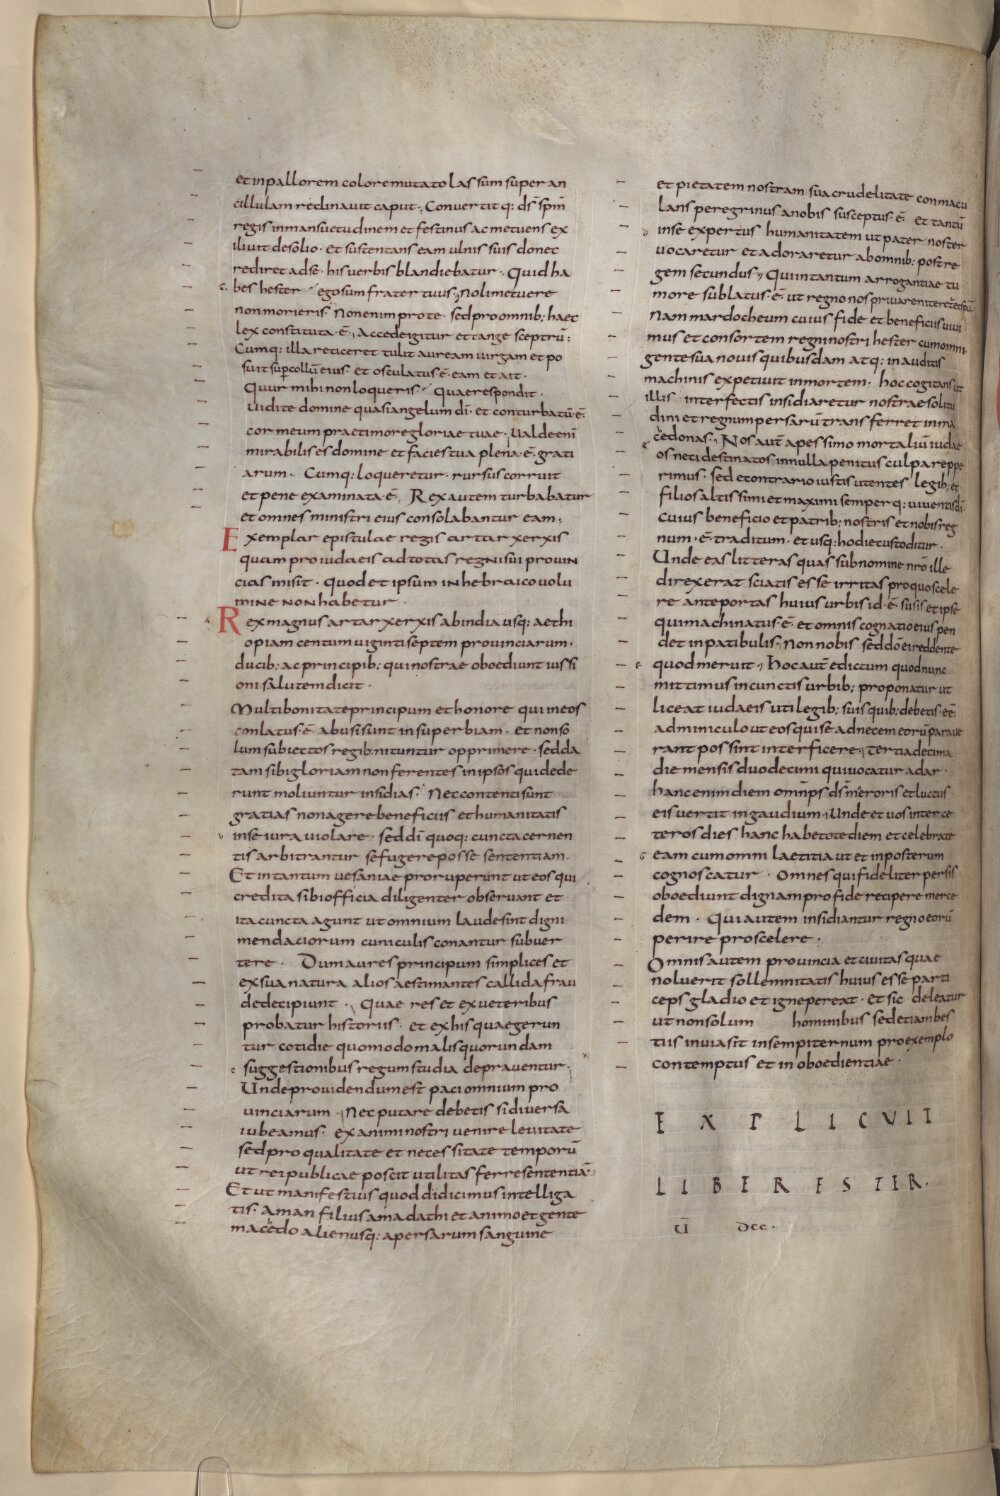 et in pallorem colore mutato lassum super an
cillulam reclinavit caput, Convertitq: ds̄ spm̄
regis in mansuetudinem et festinus ac metuens ex
iliuit de solio · et sustentans eam ulnis suis donec
rediret ad se · his verbis blandiebatur · Quid ha
bes hester · ego sum frater tuus, Noli metuere
non morieris · Non enim pro te · sed pro omnib; haec
lex constituta · ē, Accede igitur et tange sceptrū ;
Cumq: illa reticeret tulit auream uirgam et po
suit sup collū eius · et osculatus · ē · eam et ait ·
Quur mihi non loqueris · Quae respondit ·
Uidi te domine quasi angelum di · et conturbatū · ē ·
cor meum prae timore gloriae tuae · Ualde enī
mirabilis es domine et facies tua plena · ē · grati
arum · Cumq: loqueretur · rursus corruit
et pene examinata · ē, Rex autem turbabatur
et omnes ministri eius consolabantur eam,
Exemplar epistulae regis artarxerxis
quam pro iudaeis ad totas regni sui provin
cias misit · quod et ipsum in hebraico volu
mine non habetur ·
Rex magnus artarxerxis ab india usq; aethi
opiam centum uiginti septem provinciarum ·
ducib; ac principib; qui nostrae oboediunt iussi
oni salutem dicit ·
Multi bonitate principum et honore qui in eos
conlatus · ē · abusi sunt in superbiam · et non so
lum subiectos regib; nituntur opprimere · sed da
tam sibi gloriam non ferentes in ipsos qui dede
runt moliuntur insidias · Nec contenti sunt
gratias non agere beneficiis et humanitatis
in se iura uiolare · sed di quoq; cuncta cernen
tis arbitrantur se fugere posse sententiam ·
Et in tantum uesaniae proruperunt ut eos qui
credita sibi officia diligenter observant et
ita cuncta agunt ut omnium laude sint digni
mendaciorum cuniculis conantur subuer
tere · Dum aures principum simplices et
ex sua natura alios aestimantes callida frau
de decipiunt · Quae res et ex ueteribus
probatur historiis · et ex his quae gerun
tur cotidie quomodo malis quorundam
suggestionibus regum studia depraventur ·
Unde providendum est paci omnium pro
uinciarum · Nec putare debetis si diversa
iubeamus · ex animi nostri venire levitate
sed pro qualitate et necessitate temporū
ut rei publicae poscit utilitas ferre sententiā ·
Et ut manifestius quod didicimus intelliga
tis · Aman filius amadathi et animo et gente
macedo alienusq: a persarum sanguine
et pietatem nostram sua crudelitate conmacu
lans peregrinus a nobis susceptus · ē · et tantū
in se expertus humanitatem ut pater noster
uocaretur et adoraretur ab omnib; post re
gem secundus, Qui in tantum arrogantiae tu
more sublatus · ē · ut regno nos privare niteretur
Nam mardocheum cuius fide et beneficiis uiui
mus et consortem regni nostri hester cum omni
gente sua novis quibusdam atq: inauditis
machinis expetivit in mortem · hoc cogitans ut
illis interfectis insidiaretur nostrae solitu
dini et regnum persarū transferret in ma
cedonas · Nos autē a pessimo mortaliū iudae
os neci destinatos in nulla penitus culpa reppe
rimus · sed e contrario iustis utentes legib; et
filios altissimi et maximi semperq: uiventis di
cuius beneficio et patrib; nostris et nobis reg
num · ē · traditum · et usq; hodie custoditur ·
Unde eas litteras quas sub nomine nr̄o ille
direxerat sciatis esse irritas pro quo scele
re ante portas huius urbis id · ē · susis et ipse
qui machinatus · ē · et omnis cognatio eius pen
det in patibulis · Non nobis sed dō ei reddente
quod meruit, Hoc autē edictum quod nunc
mittimus in cunctis urbib; proponatur ut
liceat iudaeis uti legib; suis quib; debetis · eē
adminiculo ut eos qui se ad necem eorū parave
rant possint interficere, Tertia decima
die mensis duodecimi qui uocatur adar ·
hanc enim diem omn̄ps ds̄ meroris et luctus ·
eis uertit in gaudium, Unde et uos inter ce
teros dies hanc habetote diem et celebrate
eam cum omni laetitia ut et in posterum
cognoscatur · Omnes qui fideliter persis
oboediunt dignam pro fide recipere merce
dem · Qui autem insidiantur regno eorū
perire pro scelere ·
Omnis autem provincia et civitas quae
noluerit sollemnitatis huius esse parti
ceps gladio et igne pereat · et sic deleatur
ut non solum hominibus sed etiam bes
tiis inuia sit in sempiternum pro exemplo
contemptus et inoboedientiae ·
EXPLICUIT
LIBER ESTER·
Ū DCC ·